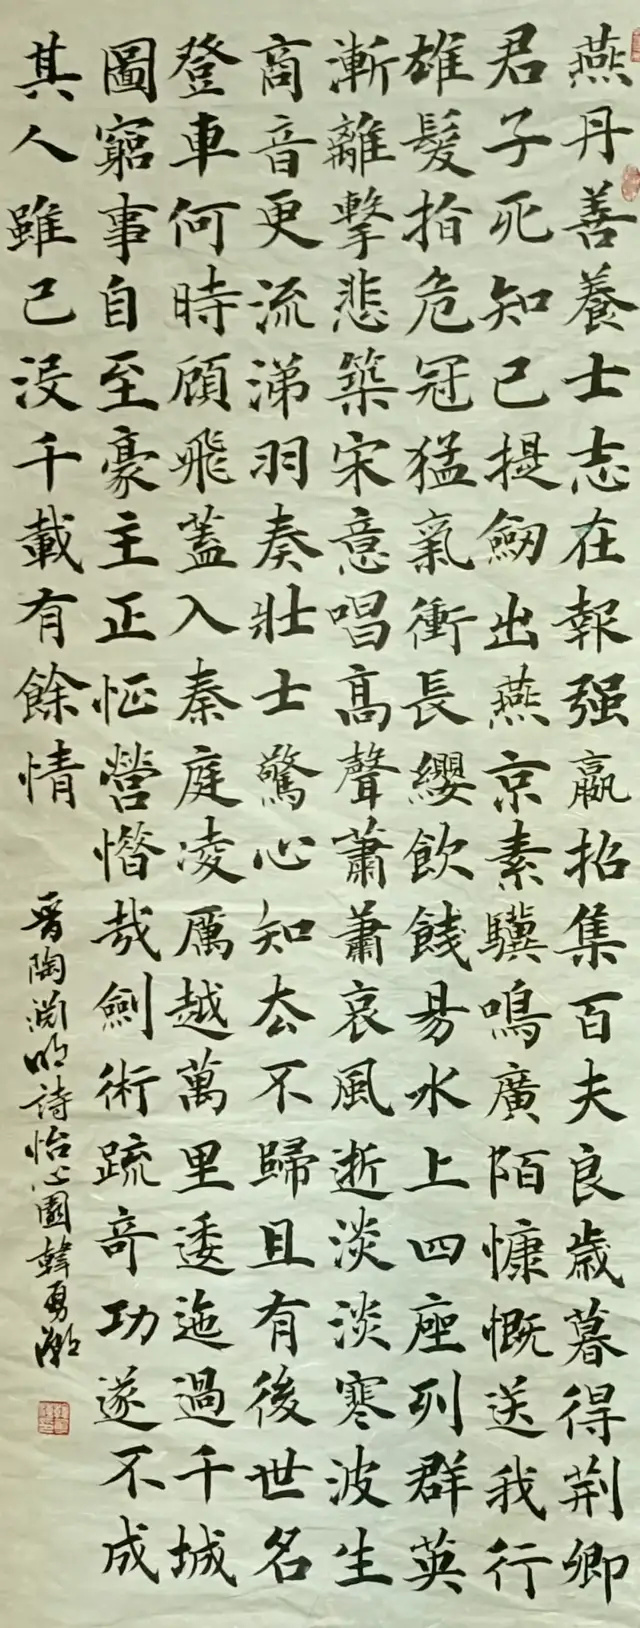 燕丹善養士志在報强嬴招集百夫良歲暮得荆卿
君子死知己提劒出燕京素驥鳴廣陌慷慨送我行
雄髮指危冠猛氣衝長纓飲餞易水上四座列群英
漸離擊悲築宋意唱髙聲蕭蕭哀風逝淡淡寒波生
商音更流涕羽奏壯士驚心知去不歸且有後世名
登車何時顧飛蓋入秦庭凌厲越萬里逶迤過千城
圖窮事自至豪主正怔營惜哉劍術疏奇功遂不成
其人雖已没千載有餘情
晉陶淵明詩怡心園韓勇